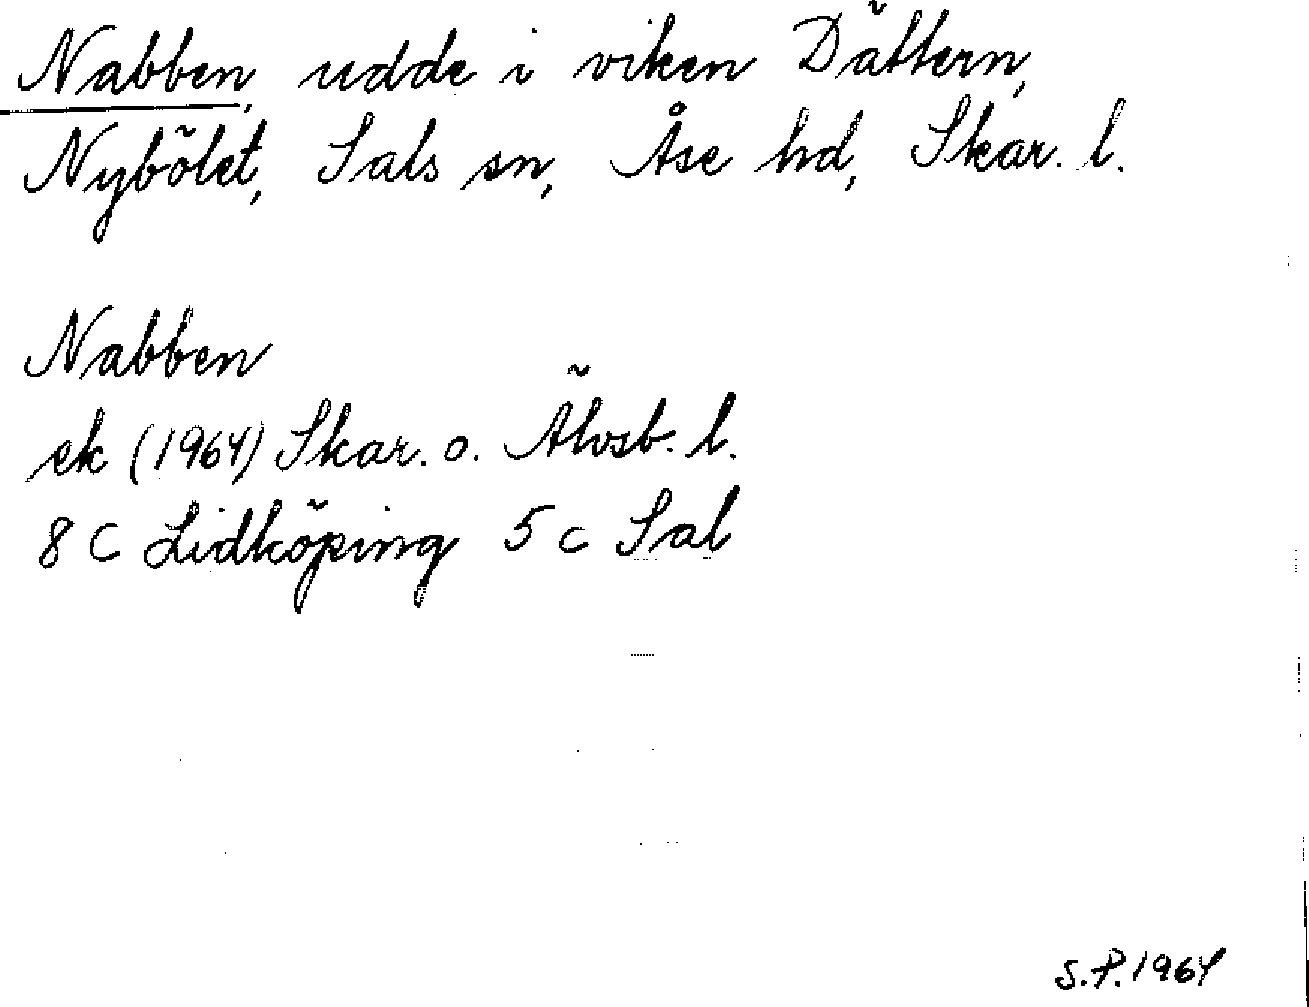 Nabben, udde i viken Dättern,
Nybölet, Sals sn, Åse hd, Skar. l.
Nabben
ek (1964) Skar. o. Älvsb. l.
8 C Lidköping 5 c Sal
S.P. 1964